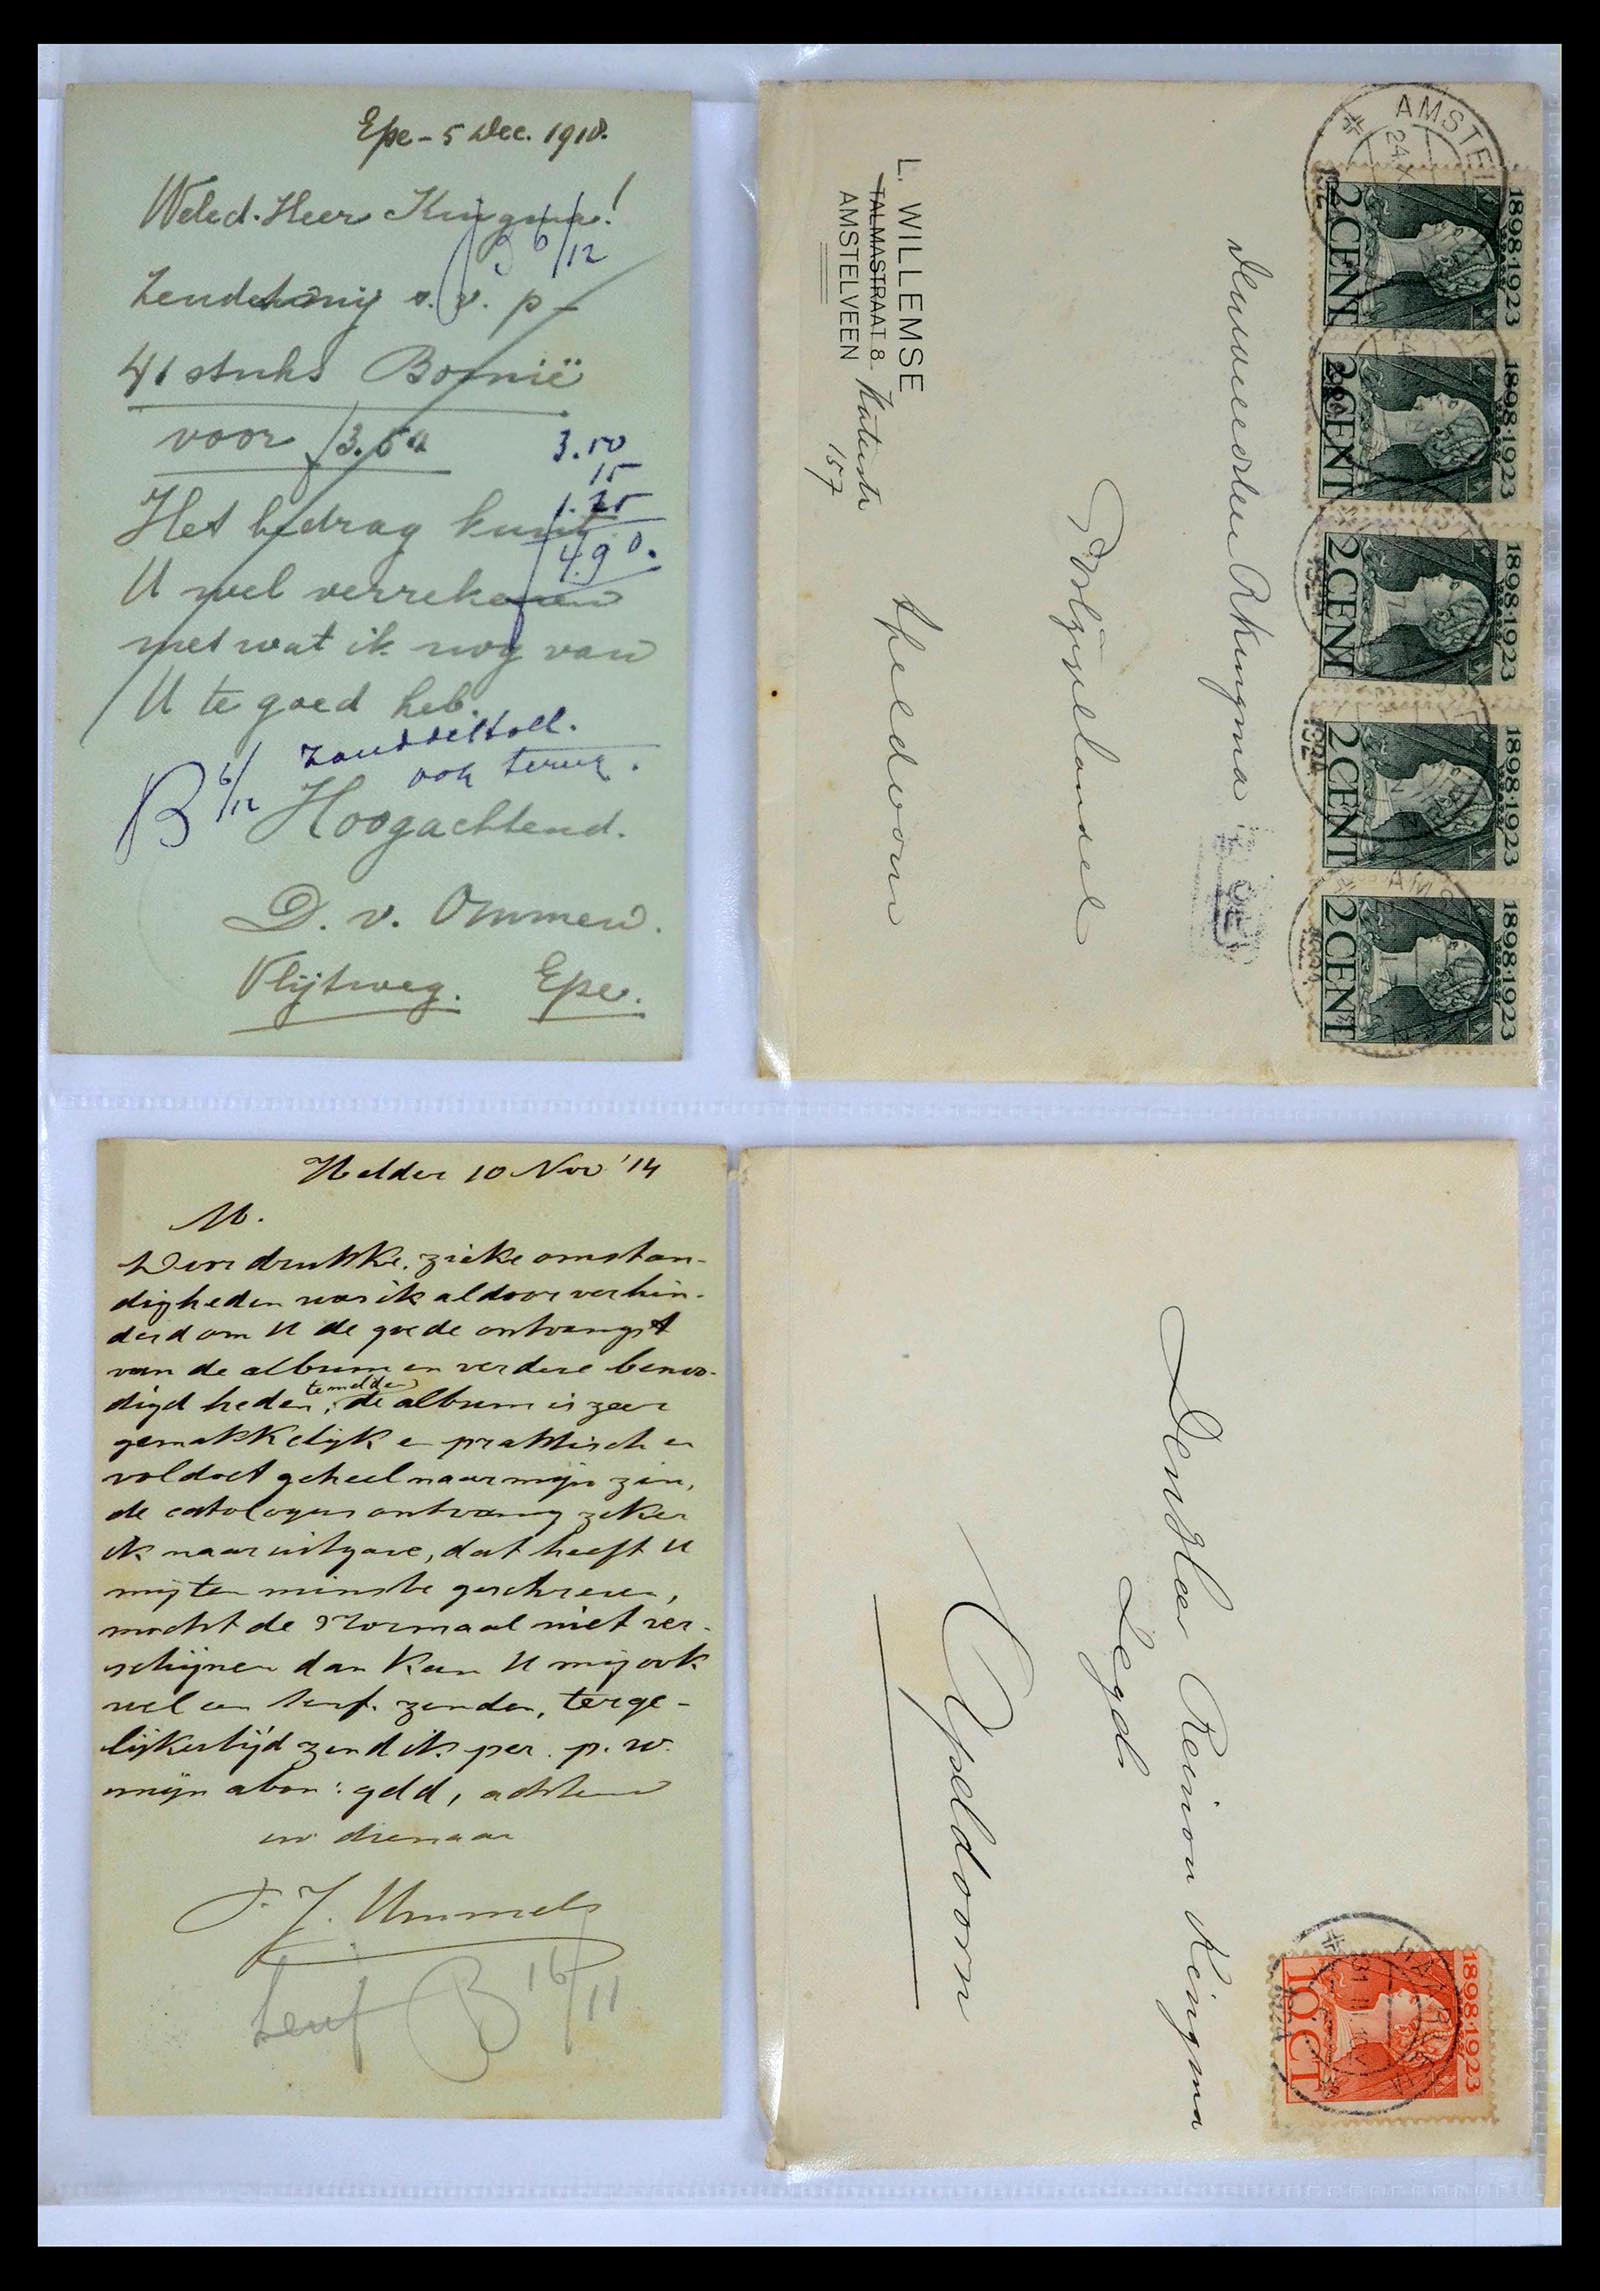 Epe - 5 Dec. 1918.
Weled. Heer Kingma!
6/12
Zendt mij s.v.p
41 stuks Bosnië
voor f3.50
3.50
15
1.25
4.90.
Het bedrag kunt
U wel verrekenen
met wat ik nog van
U te goed heb.
ook terug.
B 6/12
Hoogachtend.
D. v. Ommen.
Vlijtweg. Epe.
AMSTEL
24.X
1898·1923
2 CENT
1898·1923
2 CENT
1898·1923
2 CENT
1898·1923
2 CENT
1898·1923
2 CENT
AMS
Kingma
Apeldoorn
L. WILLEMSE
TALMASTRAAT 8
157
AMSTELVEEN
Helder 10 Nov '14
M.
Door drukke, zieke omstan-
digheden was ik aldoor verhin-
derd om U de goede ontvangst
van de album en verdere benoo-
digdheden te melden; de album is zeer
gemakkelijk en praktisch en
voldoet geheel naar mijn zin,
de catologus ontvang zeker
ik naar uitgave, dat heeft U
mij ten minste geschreven,
mocht de Normaal niet ver-
schijnen dan kan U mij ook
wel een Senf. zenden, terge-
lijkertijd zend ik per. p.w.
mijn abon: geld, achtend
uw dienaar
J. Ummels
Senf B 16/11
1898·1923
10 CT
31
Den Heer Reinou Keingma
Legd.
Apeldoorn